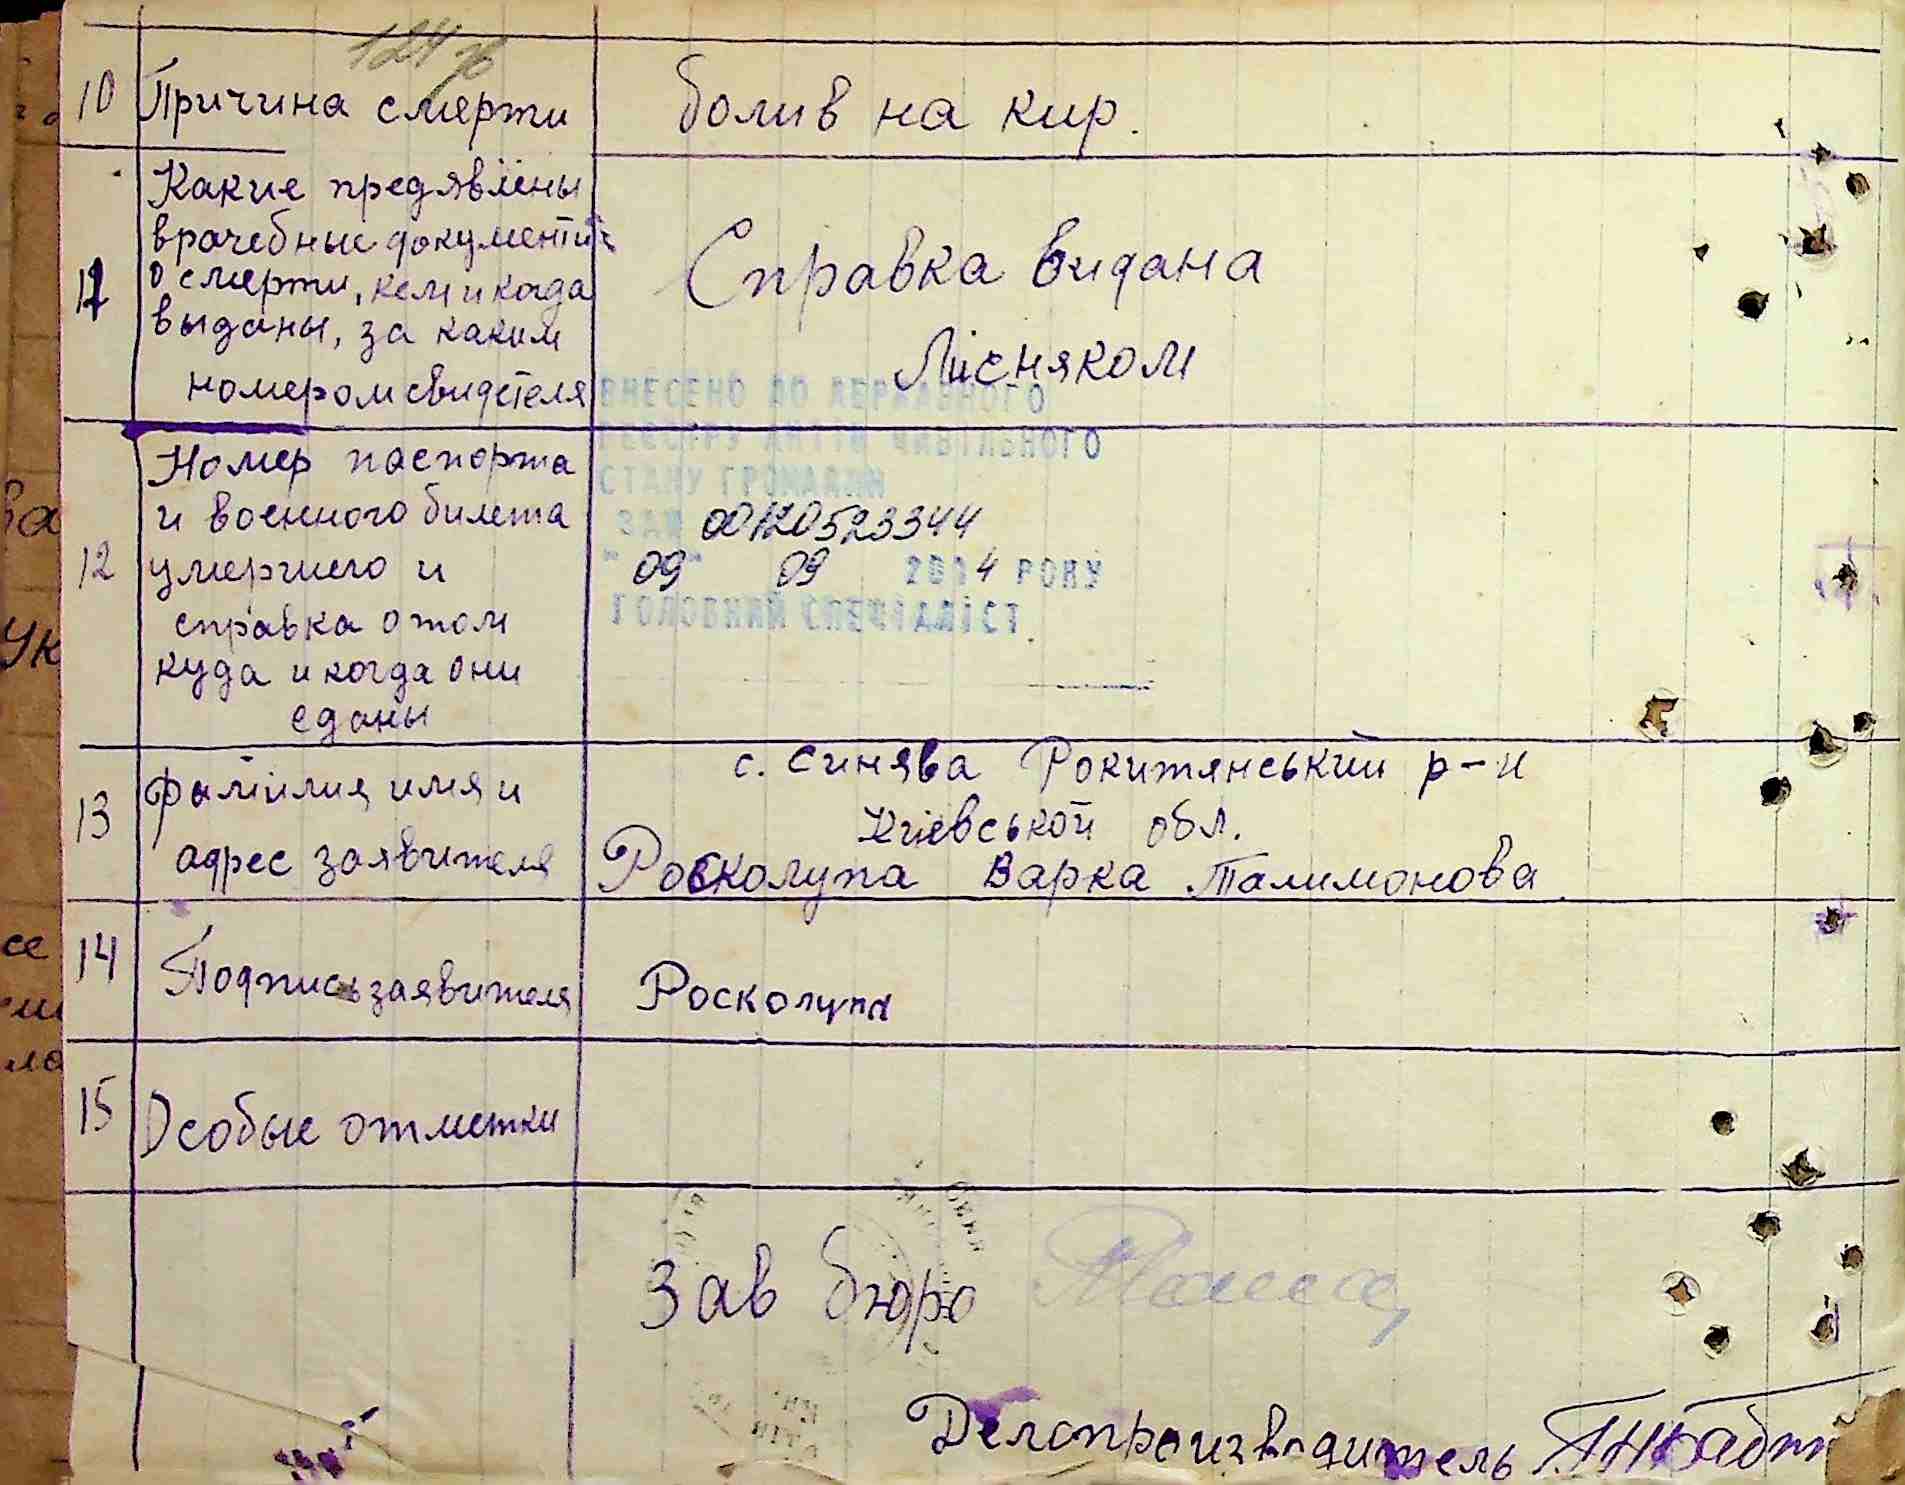 124 зв
10 Причина смерти болив на кир.
11 Какие предявлены
врачебные документи
о смерти, кем и когда
выданы, за каким
номером свидетеля
Справка видана
Лісняком
12 Номер паспорта
и военного билета
умершего и
справка о том
куда и когда они
сданы
ВНЕСЕНО ДО ДЕРЖАВНОГО
РЕЄСТРУ АКТІВ ЦИВІЛЬНОГО
СТАНУ ГРОМАДЯН
ЗА № 00120523344
"09" 09 2014 РОКУ
ГОЛОВНИЙ СПЕЦІАЛІСТ
13 Фамилия, имя и
адрес заявителя
с. Синява Рокитянський р-н
Київськой обл.
Росколупа Варка Талимонова
14 Подпись заявителя Росколупа
15 Особые отметки
Зав бюро
Делопроизводитель